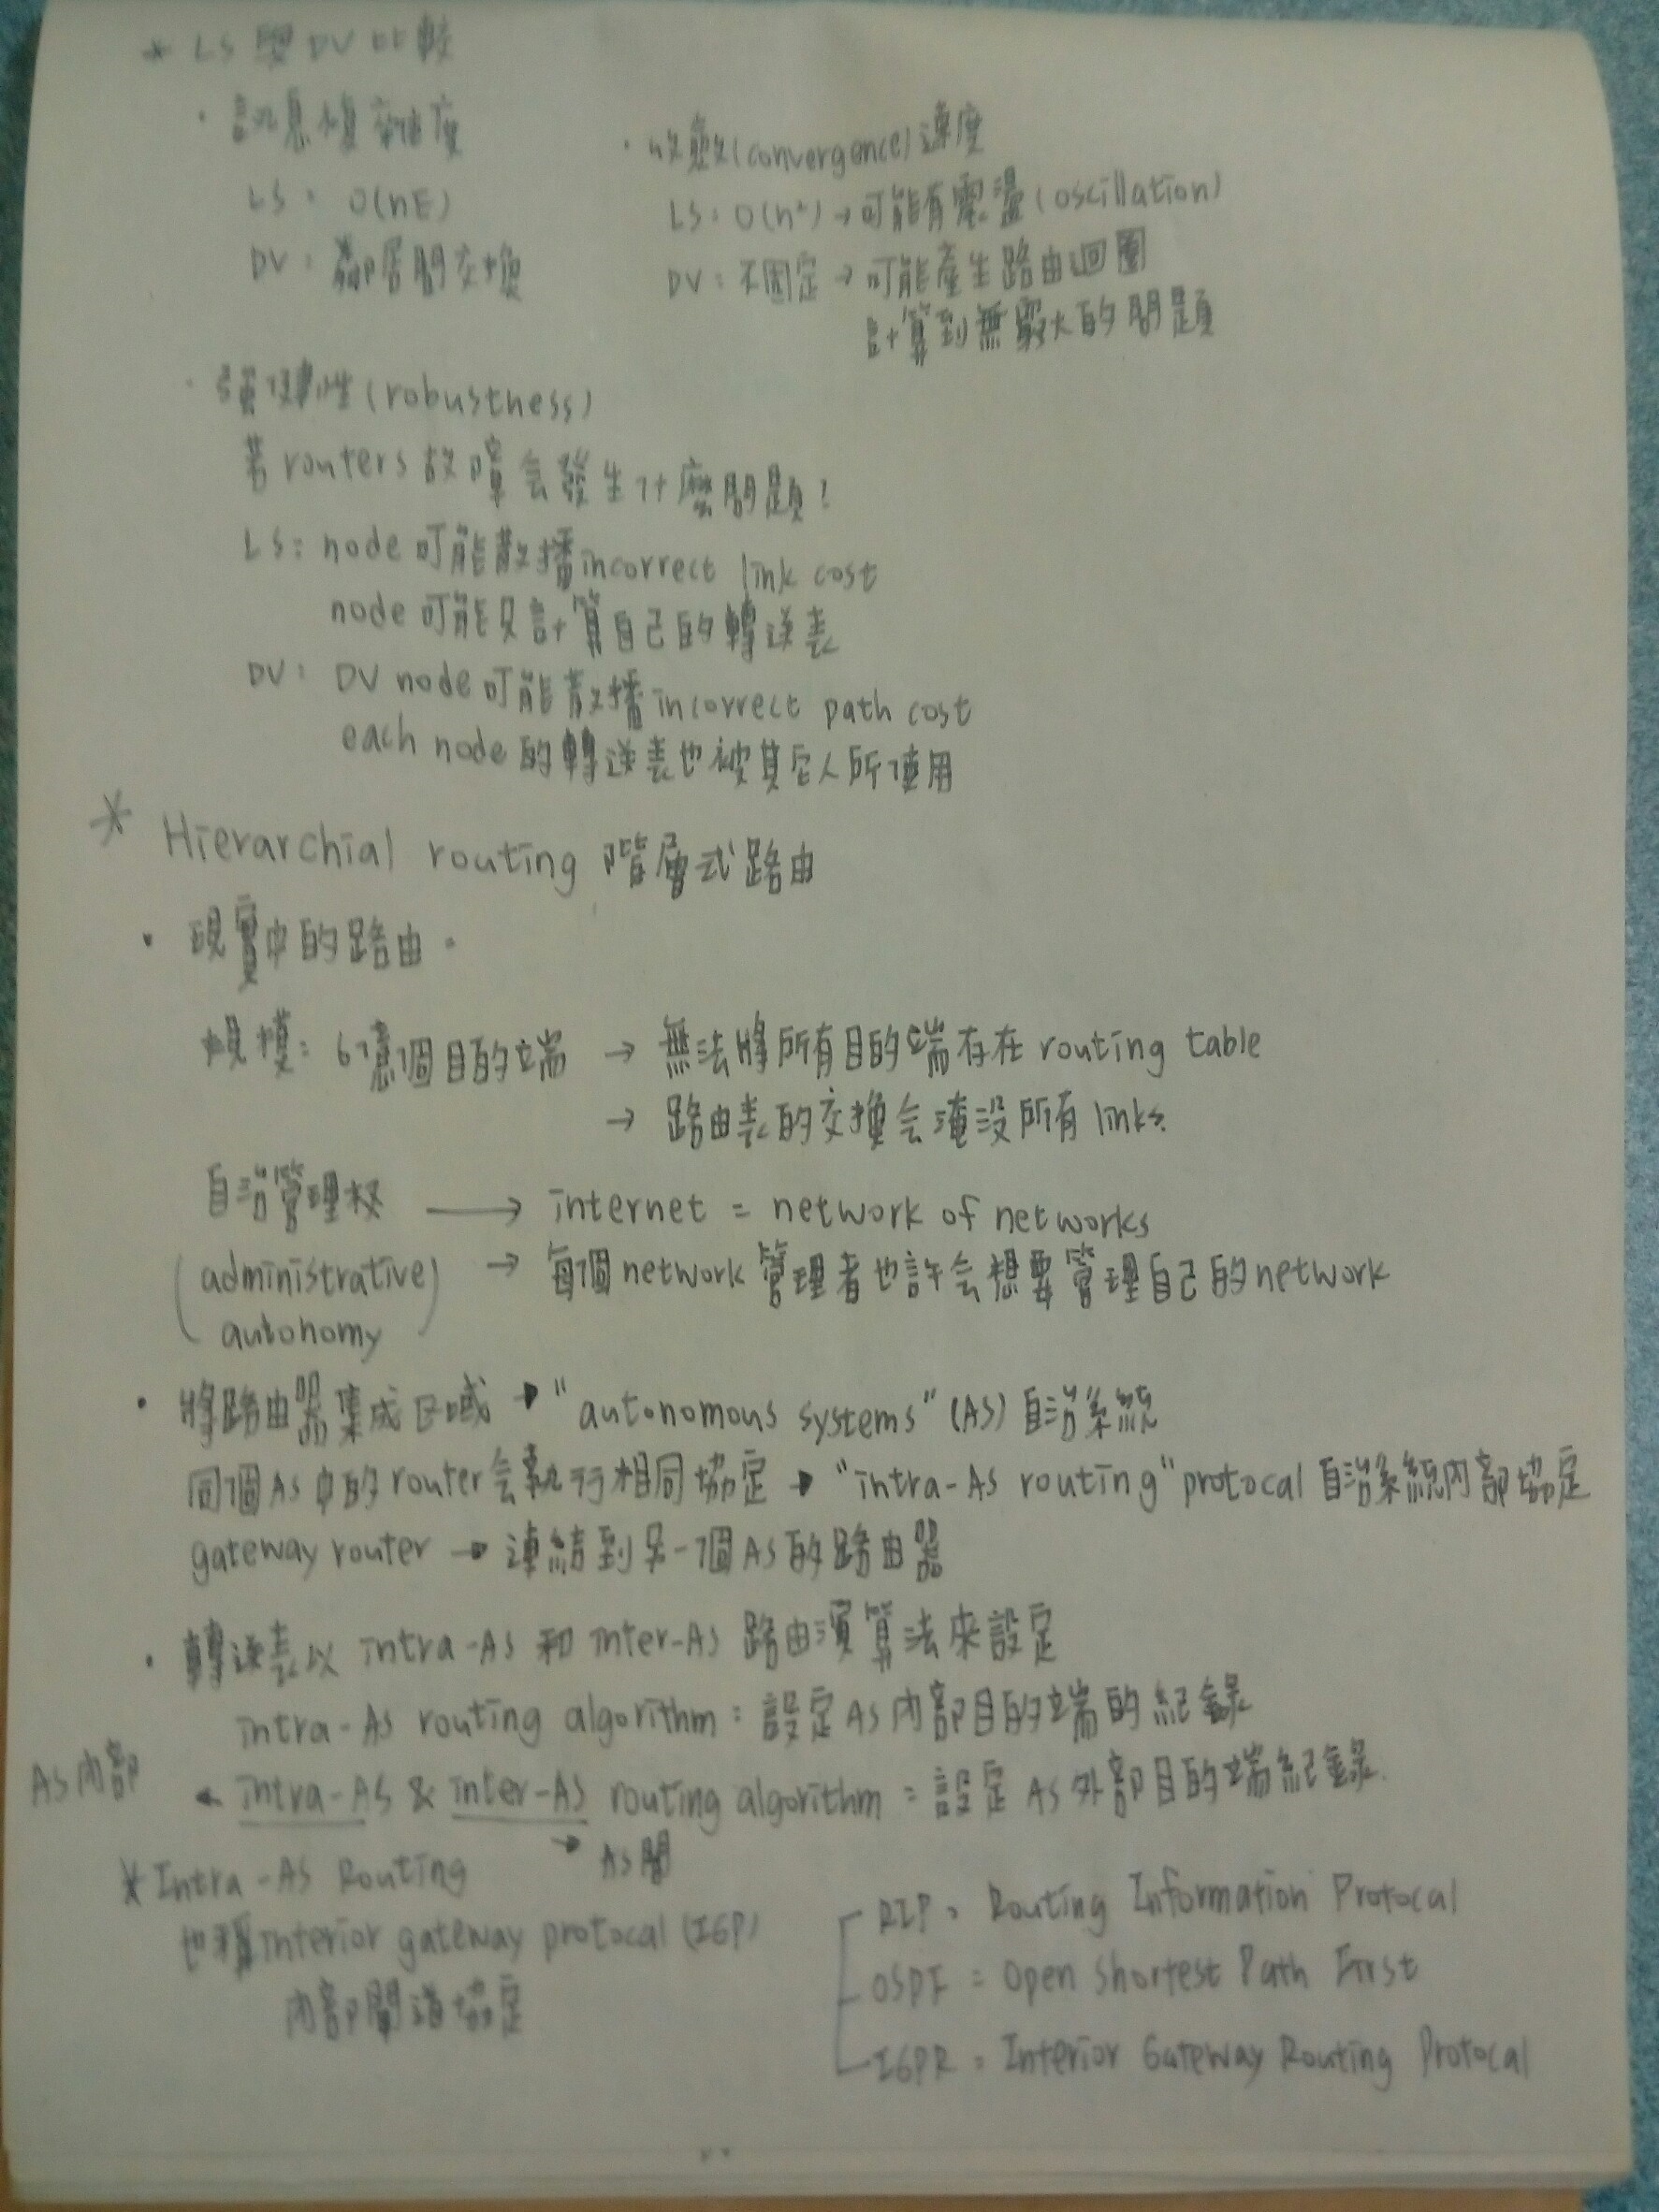 * LS與DV比較
· 訊息複雜度
LS: O(nE)
DV: 鄰居間交換
· 收斂(convergence)速度
LS: O(n²) → 可能有震盪(oscillation)
DV: 不固定 → 可能產生路由迴圈
計算到無窮大的問題
· 強健性(robustness)
若routers故障会發生什麼問題?
LS: node可能散播incorrect link cost
node可能只計算自己的轉送表
DV: DV node可能散播incorrect path cost
each node的轉送表也被其它人所使用
* Hierarchial routing 階層式路由
· 現實中的路由。
規模: 6億個目的端 → 無法將所有目的端存在routing table
→ 路由表的交換会淹沒所有links.
自治管理权 → internet = network of networks
(administrative autonomy) → 每個network管理者也許会想要管理自己的network
· 將路由器集成区域 → "autonomous systems" (AS) 自治系統
同個AS中的router会執行相同協定 → "intra-AS routing" protocal 自治系統內部協定
gateway router → 連結到另一個AS的路由器
· 轉送表以 intra-AS 和 inter-AS 路由演算法來設定
intra-AS routing algorithm: 設定AS內部目的端的紀錄
AS內部 ← intra-AS & inter-AS routing algorithm = 設定AS外部目的端紀錄.
→ AS間
* Intra-AS Routing
也稱interior gateway protocal (IGP)
內部閘道協定
RIP: Routing Information Protocal
OSPF = Open Shortest Path First
IGPR: Interior Gateway Routing Protocal